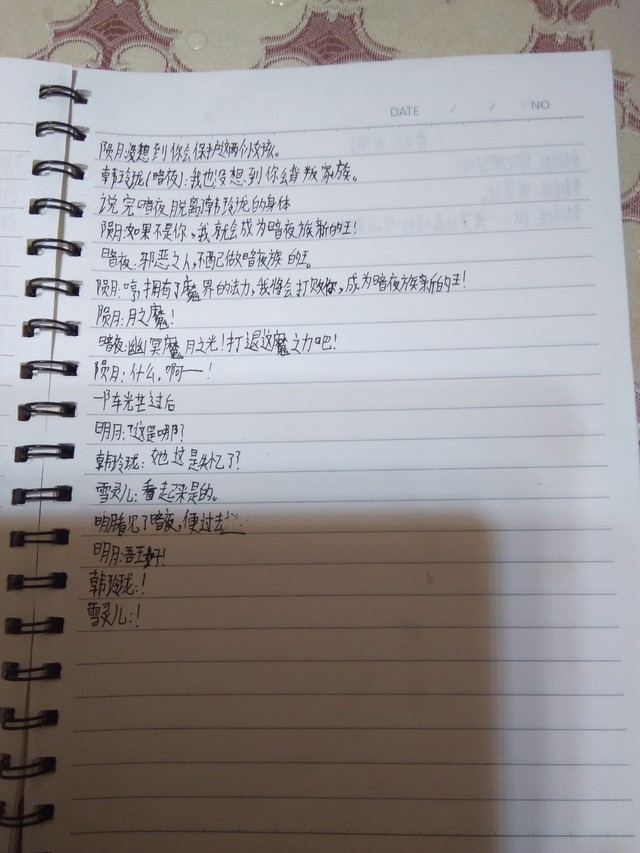 DATE / / NO
陨月:没想到你会保护这两个女孩。
韩玲珑(暗夜):我也没想到你会背叛家族。
说完暗夜脱离韩玲珑的身体
陨月:如果不是你,我就会成为暗夜族新的王!
暗夜:邪恶之人,不配做暗夜族的王。
陨月:哼,拥有了魔界的法力,我将会打败你,成为暗夜族新的王!
陨月:月之魔!
暗夜:幽冥魔月之光!打退这魔之力吧!
陨月:什么,啊——!
一阵光芒过后
明月:这是哪?
韩玲珑:她这是失忆了?
雪灵儿:看起来是的。
明月看见了暗夜,便过去
明月:吾王好!
韩玲珑:!
雪灵儿:!